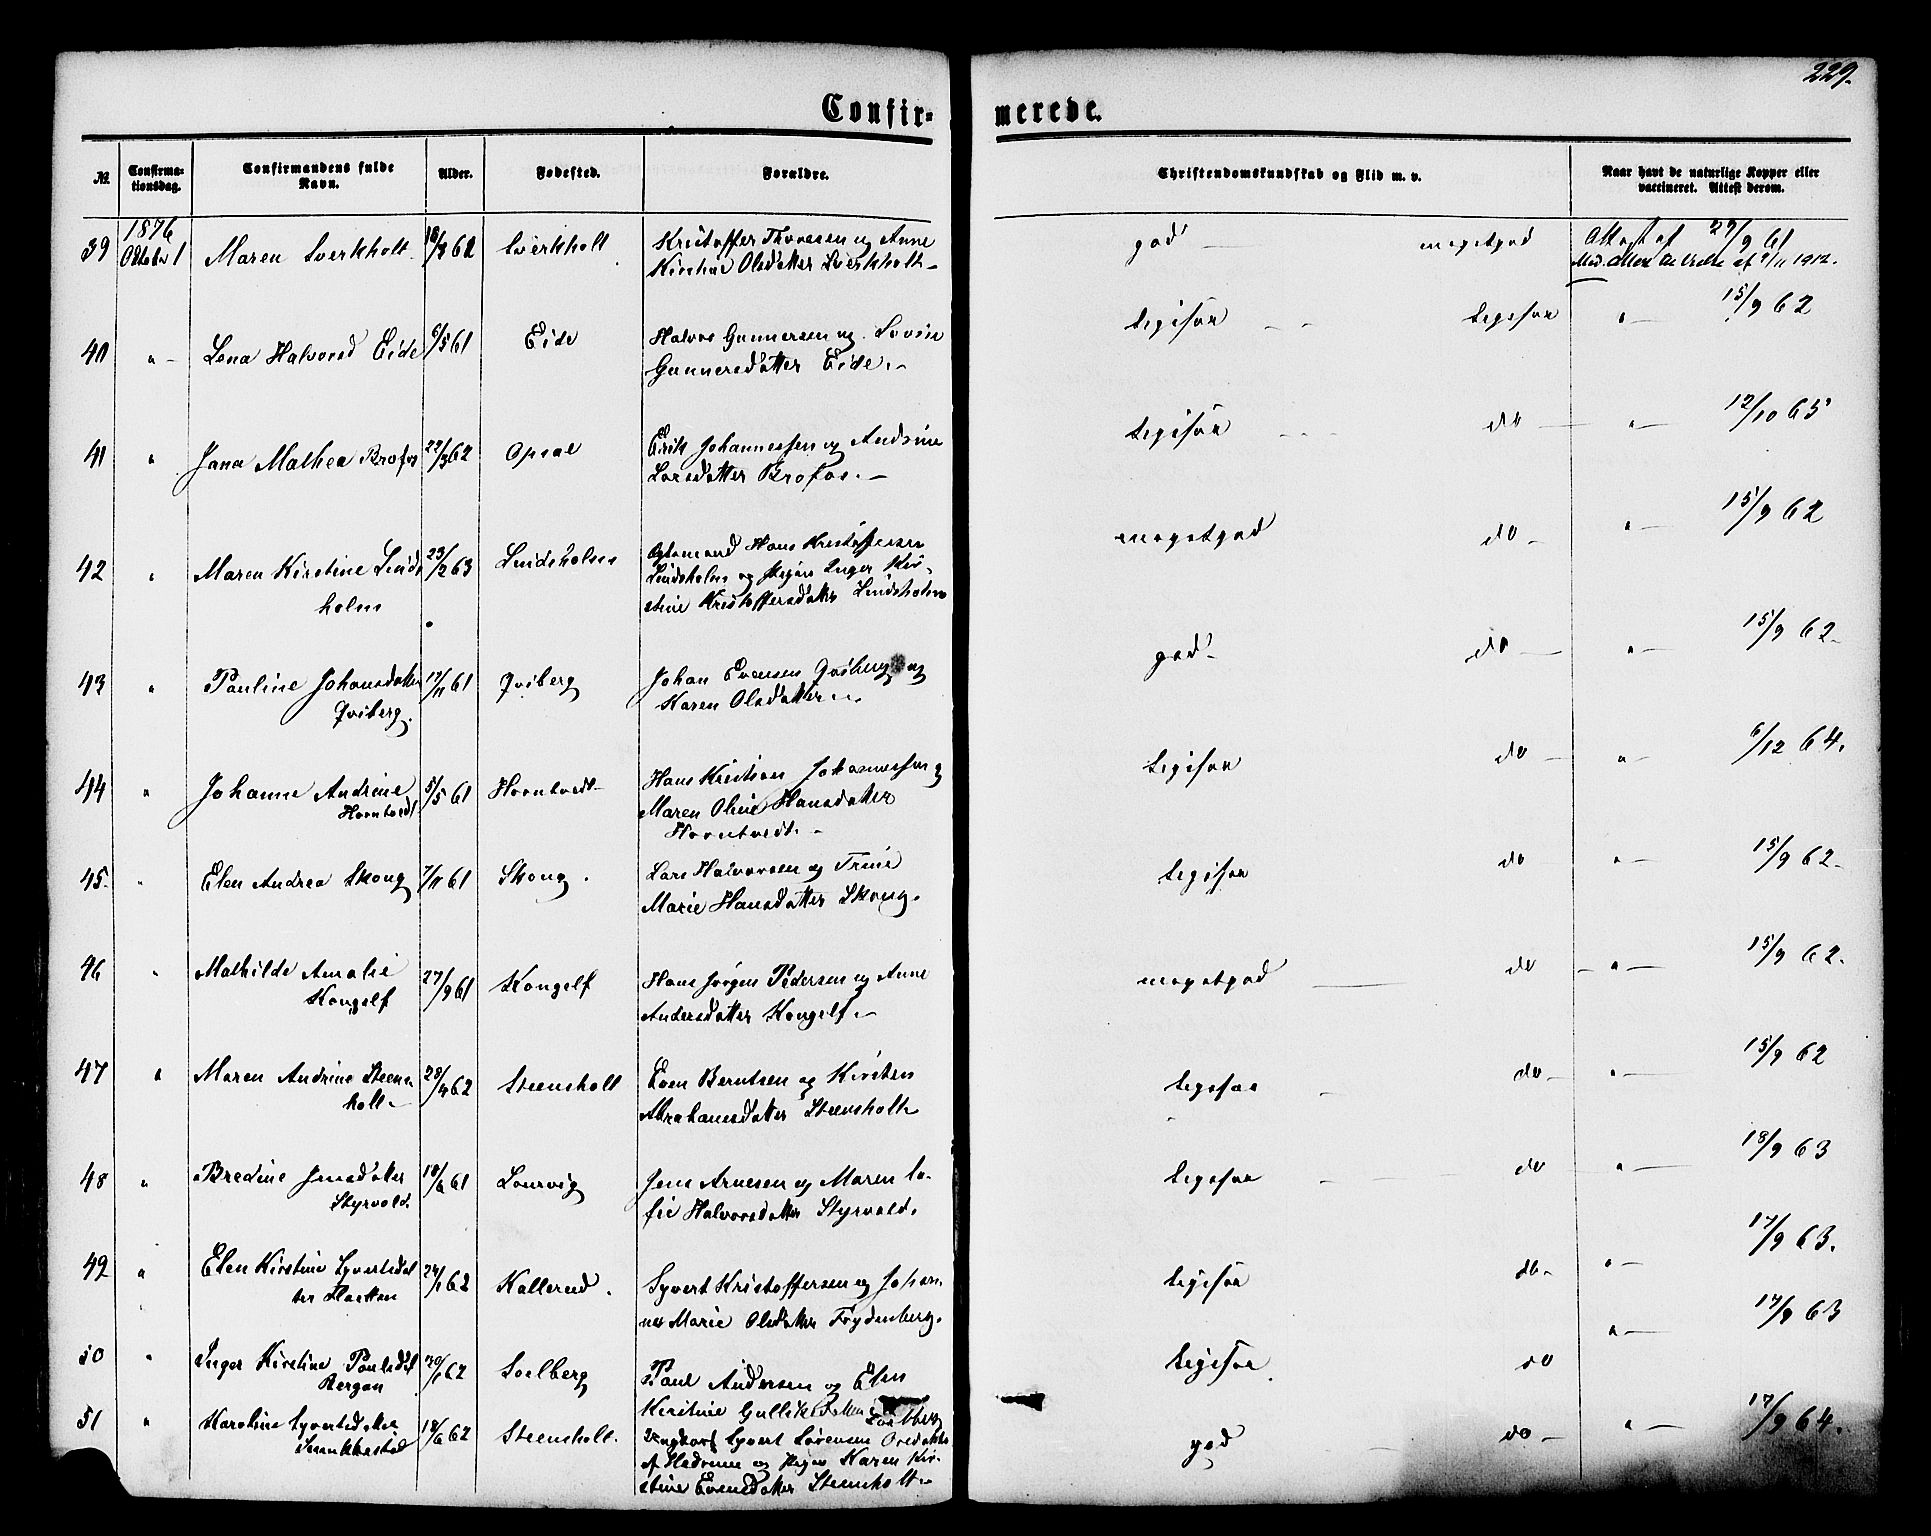 229.
Confir-
merede.
№
Confirma-
tionsdag.
Confirmandens fulde
Navn.
Alder.
Fødested.
Forældre.
Christendomskundskab og Flid m. v.
Naar havt de naturlige Kopper eller
vaccineret. Attest derom.
1876
39 Oktober 1 Maren Sverkholt 18/3 62 Sverkholt Kristoffer Thoresen og Anne
Kirstine Olsdatter Sverkholt
god megetgod Attest af 29/9 61
af 9/11 1912.
40 " Lena Halvorsd Eide 6/5 61 Eide Halvor Gunnersen og
Gunnersdatter Eide.
tegifor tegifor " 15/9 62
41 " Jana Mathea Brofos 22/3 62 Opsal Erik Johannessen og Andrine
Larsdatter Brofos.
tegifor do " 12/10 65
42 " Maren Kirstine Linds 23/2 63 Lindsholm Hans Kristoffersen
holm Lindsholm og Pigen Inger Kir-
stine Kristoffersdatter Lindsholm
megetgod do " 15/9 62
43 " Pauline Johansdatter 17/11 61 Qviberg Johan Evensen Qviberg og
Qviberg. Karen Olsdatter
god do " 15/9 62
44 " Johanne Andrine 5/5 61 Horntvedt Hans Kristian Johannessen og
Horntvedt Maren Oline Hansdatter
Horntvedt.
tegifor do " 6/12 64.
45. " Elen Andrea Skoug 7/11 61 Skoug. Lars Halvorsen og Trine
Marie Hansdatter Skoug.
tegifor do " 15/9 62
46 " Mathilde Amalie 27/9 61 Kongelf Hans Jørgen Pedersen og Anne
Kongelf Andersdatter Kongelf.
megetgod do " 15/9 62.
47 " Maren Andrine Steens 28/4 62 Steensholt Even Berntsen og Kirsten
holt Abrahamsdatter Steensholt
tegifor do " 15/9 62
48 " Bredine Jensdatter 18/6 61 Laurvig Jens Arnesen og Maren So-
Styrvold. fie Halvorsdatter Styrvold.
tegifor do " 18/9 63
49 " Elen Kirstine Syvertsdat 24/1 62 Kallerud. Syvert Kristoffersen og Johan
ter ne Marie Olsdatter Frydenberg.
tegifor do " 17/9 63.
50 " Inger Kirstine Paulsdat 30/1 62 Solberg Paul Andersen og Elen
Bergan Kirstine
tegifor do " 17/9 63
51 " Karoline Syvertsdatter 18/6 62 Steensholt. Ungkarl Syvert Sørensen
af Hedrum og Pigen Karen Kir-
stine Evensdatter Steensholt
god do " 17/9 64.